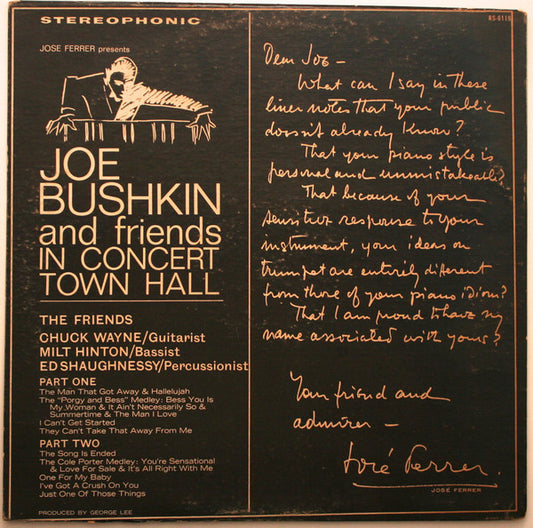 STEREOPHONIC
RS-6119
JOSE FERRER presents
JOE
BUSHKIN
and friends
IN CONCERT
TOWN HALL
THE FRIENDS
CHUCK WAYNE/Guitarist
MILT HINTON/Bassist
ED SHAUGHNESSY/Percussionist
PART ONE
The Man That Got Away & Hallelujah
The "Porgy and Bess" Medley: Bess You Is
My Woman & It Ain't Necessarily So &
Summertime & The Man I Love
I Can't Get Started
They Can't Take That Away From Me
PART TWO
The Song Is Ended
The Cole Porter Medley: You're Sensational
& Love For Sale & It's All Right With Me
One For My Baby
I've Got A Crush On You
Just One Of Those Things
PRODUCED BY GEORGE LEE
Dear Joe –
What can I say in these
liner notes that your public
doesn't already know?
That your piano style is
personal and unmistakeable?
That because of your
sensitive response to your
instrument, your ideas on
trumpet are entirely different
from those of your piano idiom?
That I am proud to have my
name associated with yours?
Your friend and
admirer –
José Ferrer.
JOSÉ FERRER